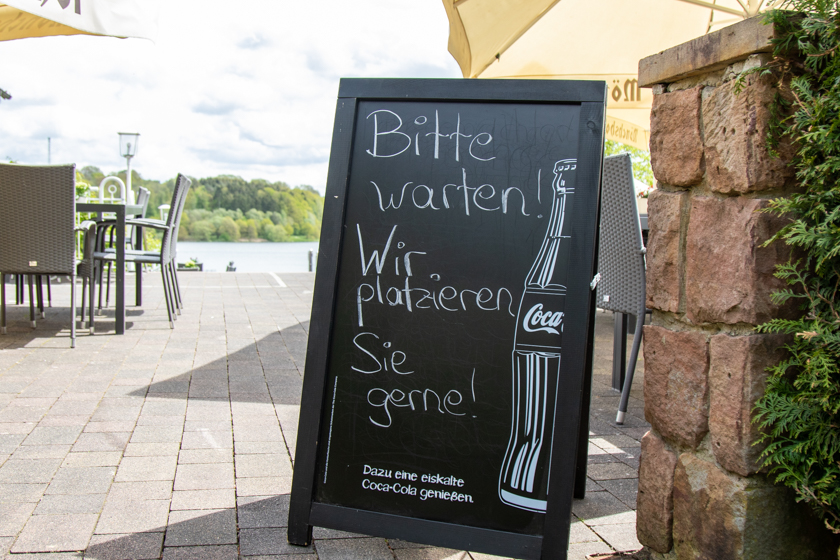 Bitte
warten!
Wir
platzieren
Sie
gerne!
Coca
Dazu eine eiskalte
Coca-Cola genießen.